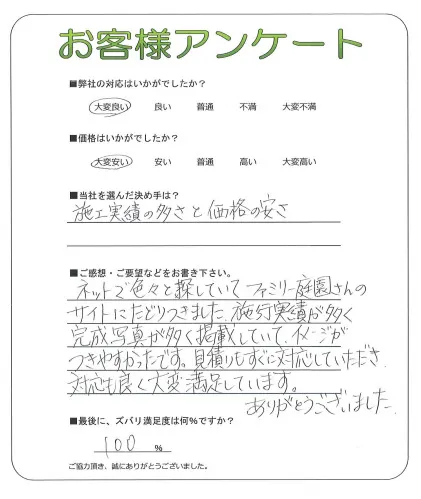 お客様アンケート
■弊社の対応はいかがでしたか?
大変良い 良い 普通 不満 大変不満
■価格はいかがでしたか?
大変安い 安い 普通 高い 大変高い
■当社を選んだ決め手は?
施工実績の多さと価格の安さ
■ご感想・ご要望などをお書き下さい。
ネットで色々と探していてファミリー庭園さんの
サイトにたどりつきました。施行実績が多く
完成写真が多く掲載していて、イメージが
つきやすかったです。見積りもすぐに対応していただき
対応も良く大変満足しています。
ありがとうございました。
■最後に、ズバリ満足度は何%ですか?
100 %
ご協力頂き、誠にありがとうございました。